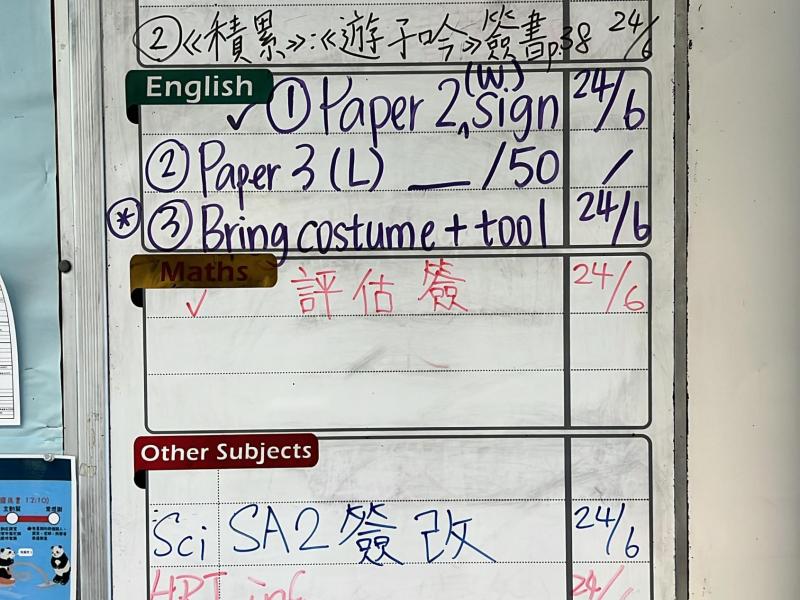 ② 《積累》:《遊子吟》簽書p.38 24/6
English
✓ ① Paper 2, sign (W.) 24/6
② Paper 3 (L) __ /50 /
* ③ Bring costume + tool 24/6
Maths
✓ 評估簽 24/6
Other Subjects
Sci SA2 簽改 24/6
24/6